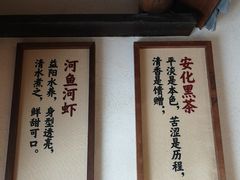 安化黑茶
平淡是本色，苦涩是历程，
清香是馈赠；
河鱼河虾
益阳水养，身型透亮，
清水煮之，鲜甜可口。